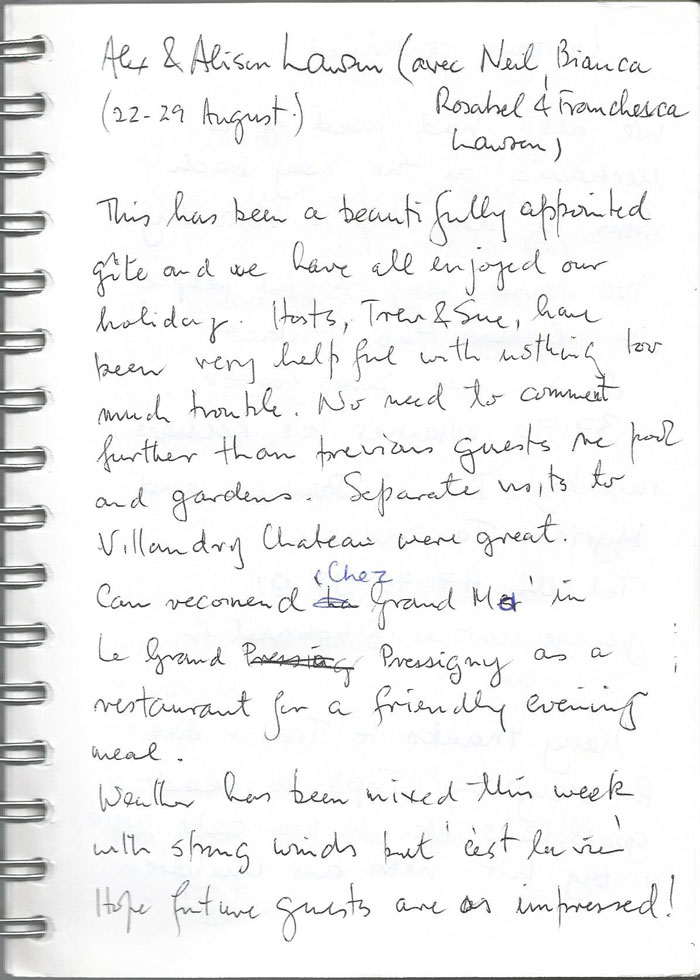 Alex & Alison Lawson (avec Neil, Bianca
(22-29 August.) Rosabel & Franchesca
Lawson)
This has been a beautifully appointed
gîte and we have all enjoyed our
holiday. Hosts, Trev & Sue, have
been very helpful with nothing too
much trouble. No need to comment
further than previous guests re pool
and gardens. Separate visits to
Villandry Chateau were great.
Can recomend 'Chez Grand M' in
Le Grand Pressigny Pressigny as a
restaurant for a friendly evening
meal.
Weather has been mixed this week
with strong winds but 'c'est la vie'
Hope future guests are as impressed!